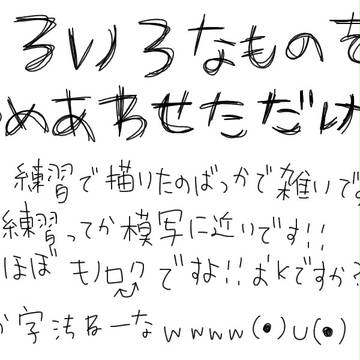 ろいろなものを
めあわせただけ
練習で描いたのばっかで雑いです
練習ってか模写に近いです!!
ほぼ モノロクですよ!!おkですか?
か字汚ねーなwwww(●)∪(●)